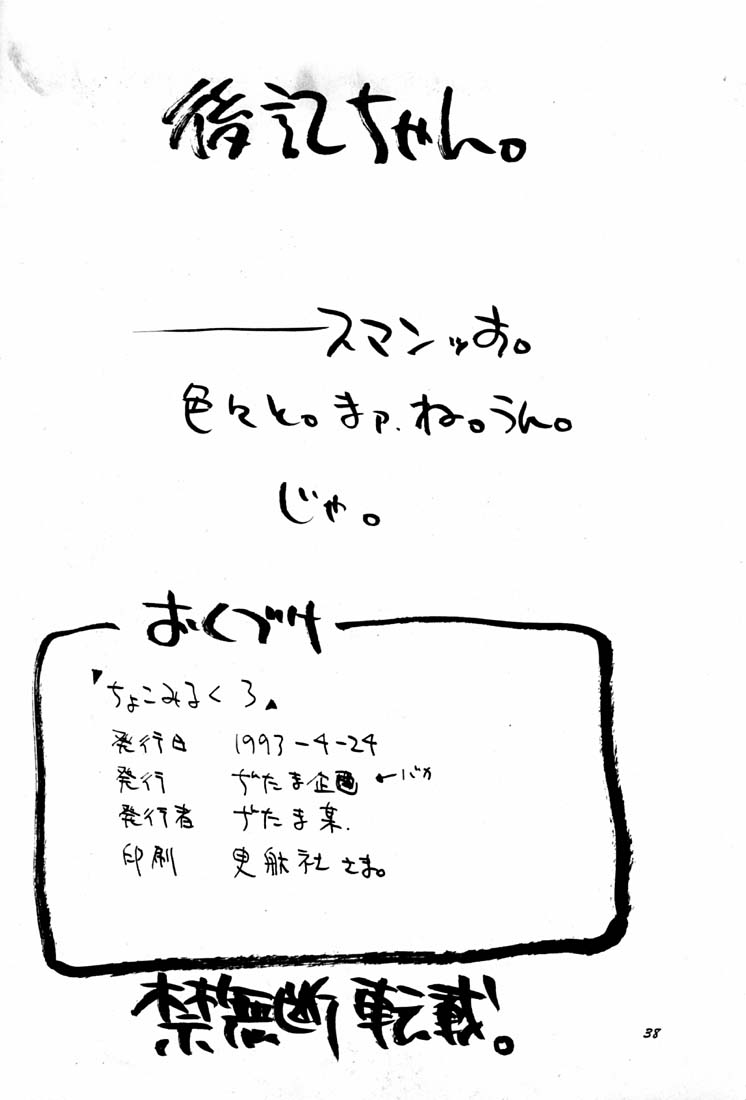 後記ちゃん。
――スマンッす。
色々と。まァ、ね。うん。
じゃ。
おくづけ
「ちょこみるく 3」
発行日 1993-4-24
発行 ぢたま企画 ←バカ
発行者 ぢたま某.
印刷 更航社さま。
禁無断転載。
38